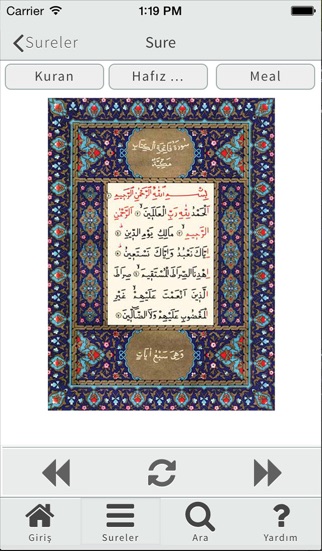 Carrier 1:19 PM
Sureler Sure
Kuran Hafız ... Meal
سُورَةُ فَاتِحَةِ الْكِتَابِ
مَكِّيَّةٌ
بِسْمِ اللّٰهِ الرَّحْمٰنِ الرَّحِيمِ
اَلْحَمْدُ لِلّٰهِ رَبِّ الْعَالَمِينَ اَلرَّحْمٰنِ
الرَّحِيمِ مَالِكِ يَوْمِ الدِّينِ
اِيَّاكَ نَعْبُدُ وَاِيَّاكَ نَسْتَعِينُ
اِهْدِنَا الصِّرَاطَ الْمُسْتَقِيمَ صِرَاطَ
الَّذِينَ اَنْعَمْتَ عَلَيْهِمْ غَيْرِ
الْمَغْضُوبِ عَلَيْهِمْ وَلَا الضَّالِّينَ
وَهِيَ سَبْعُ آيَاتٍ
Giriş Sureler Ara Yardım